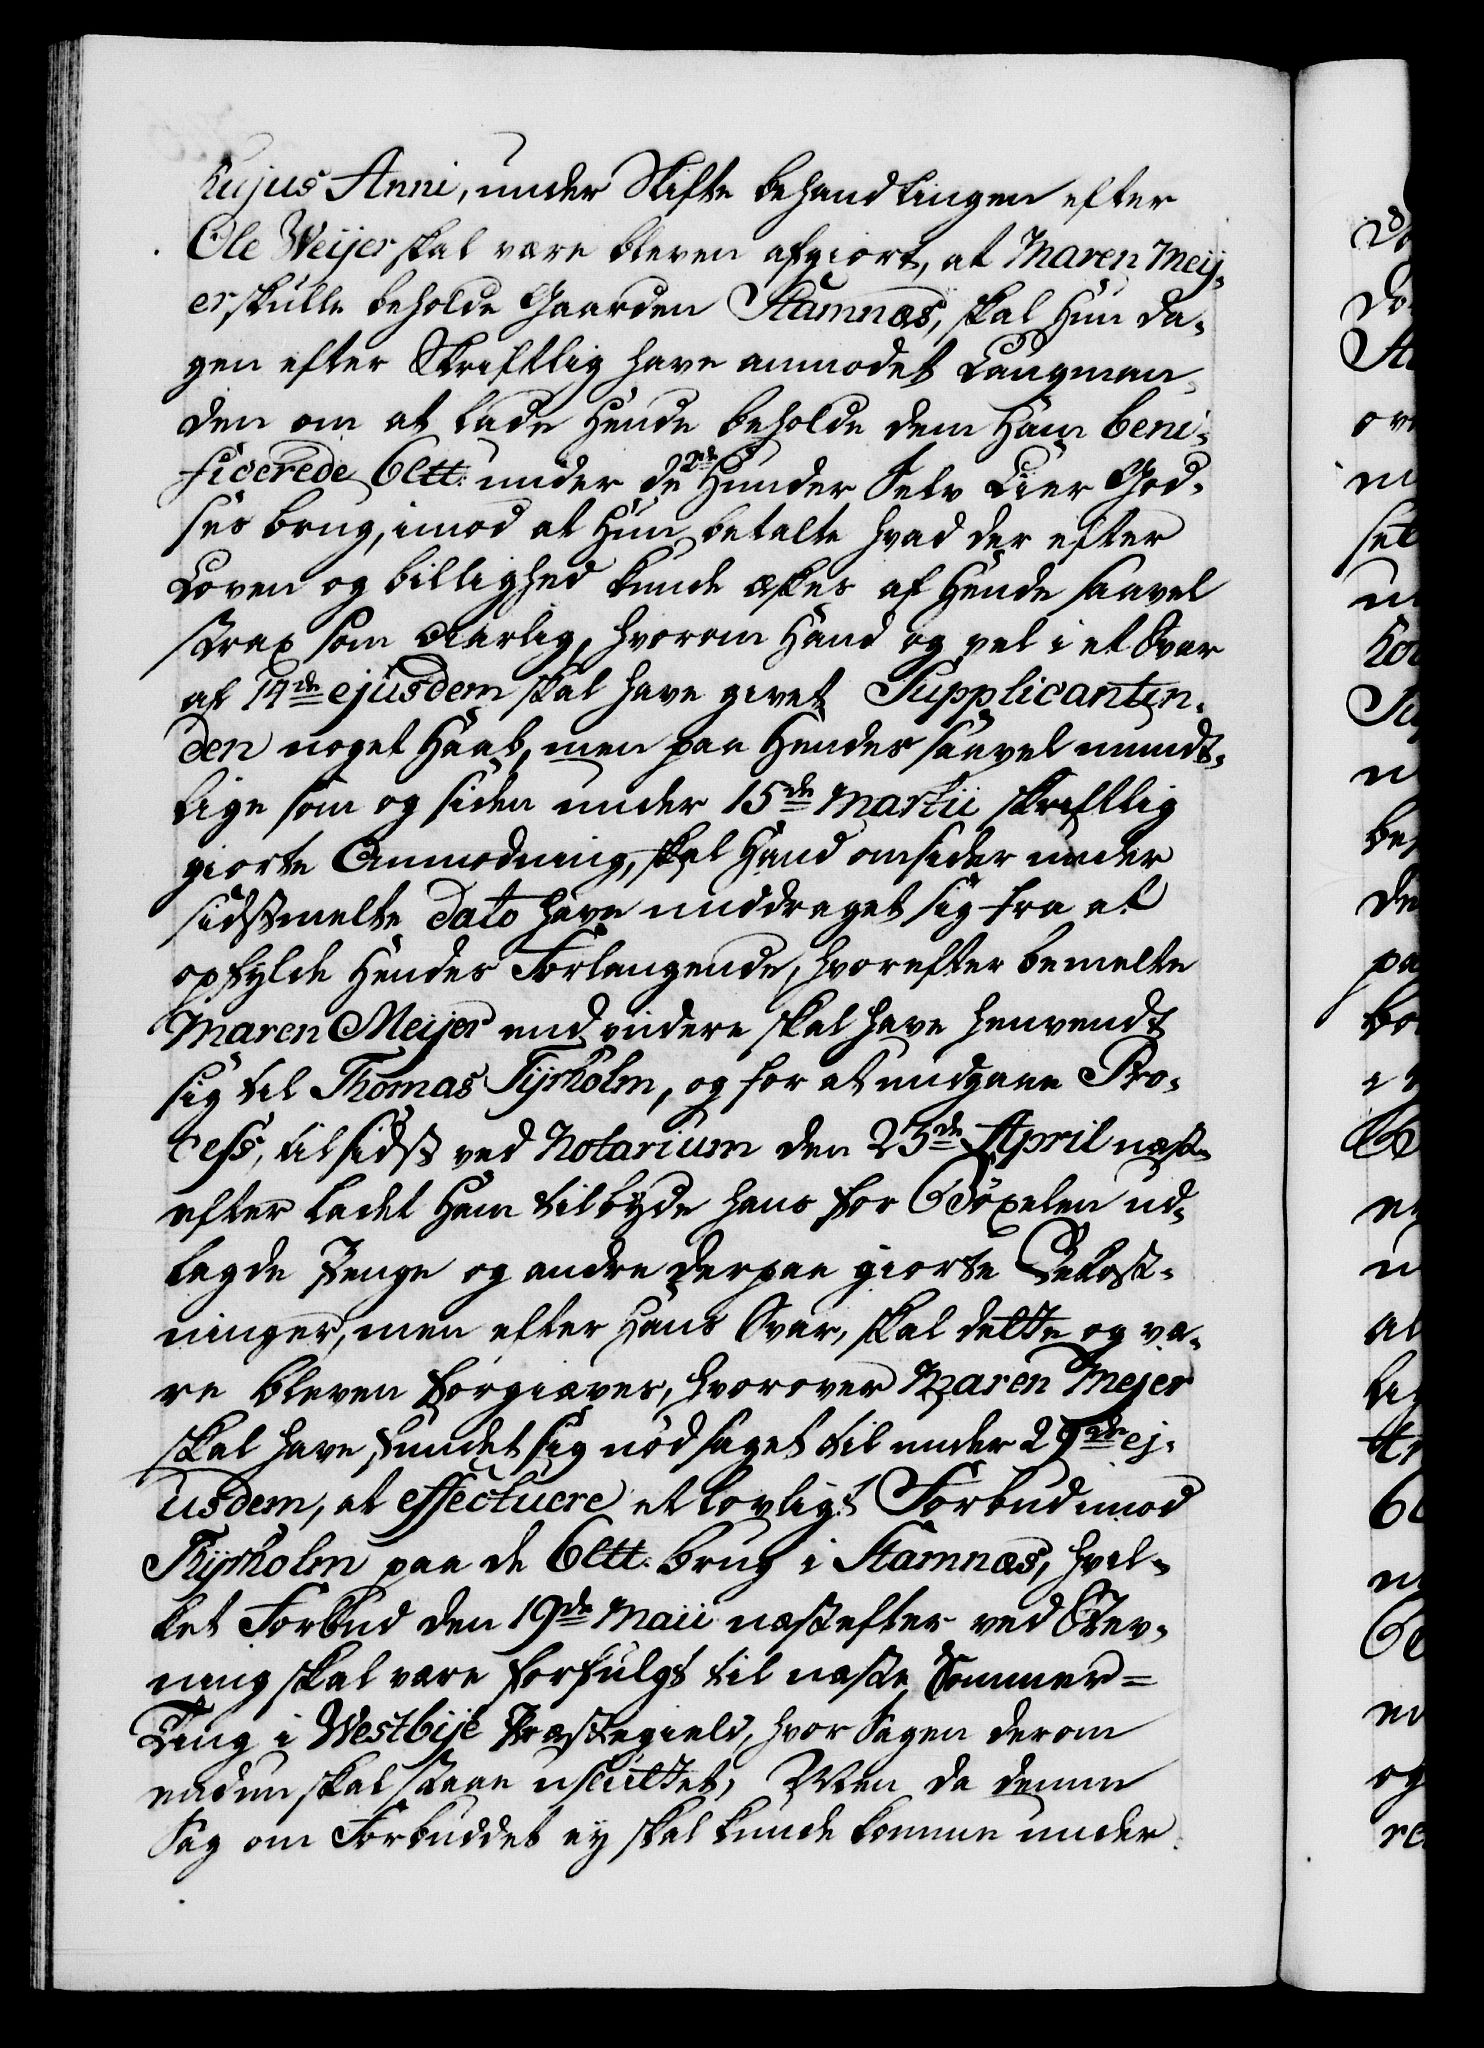 hujus Anni, under Skifte behandlingen efter
Ole Weijer skal være bleven afgiort, at Maren Meij-
er skulle beholde Gaarden Stamnæs, skal Hun da-
gen efter Skriftlig have anmodet Laugman-
den om at lade Hende beholde dem Ham beni-
ficerede 6 ltt: under de 2de Hunder Selv Lier God-
ses brug, imod at Hun betalte hvad der efter
Loven og billighed kunde æskes af Hende saavel
strax som aarlig, hvorom Hand og vel i et Svar
af 14de ejusdem skal have givet Supplicantin-
den noget Haab, men paa Hendes saavel mundt-
lige som og siden under 15de Martii skriftlig
giorte Anmodning, skal Hand omsider under
sidstmelte dato have unddraget sig fra at
opfylde Hendes Forlangende, hvorefter bemelte
Maren Meijer end videre skal have henvendt
sig til Thomas Tyrholm, og for at undgaae Pro-
cess, til sidst ved Notarium den 23de April næst-
efter ladet Ham tilbyde hans for Böxelen ud-
lagde Penge og andre derpaa giorte Bekost-
ninger, men efter Hans Svar, skal dette og væ-
re bleven forgiæves, hvorover Maren Mejer
skal have fundet sig nödsaget til under 29de ej-
usdem, at effectuere et lovligt Forbud imod
Thyrholm paa de 6 ltt: brug i Stamnæs, hvil-
ket Forbud den 19de Maii næstefter ved Stev-
ning skal være forfulgt til næste Sommer-
Ting i Westbije Præstegield, hvor Sagen derom
endnu skal staae usluttet, Men da denne
Sag om Forbuddet ey skal kunde komme under